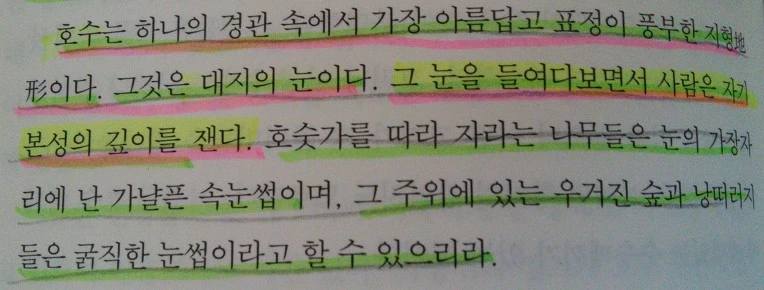 호수는 하나의 경관 속에서 가장 아름답고 표정이 풍부한 지형地
形이다. 그것은 대지의 눈이다. 그 눈을 들여다보면서 사람은 자기
본성의 깊이를 잰다. 호숫가를 따라 자라는 나무들은 눈의 가장자
리에 난 가냘픈 속눈썹이며, 그 주위에 있는 우거진 숲과 낭떠러지
들은 굵직한 눈썹이라고 할 수 있으리라.